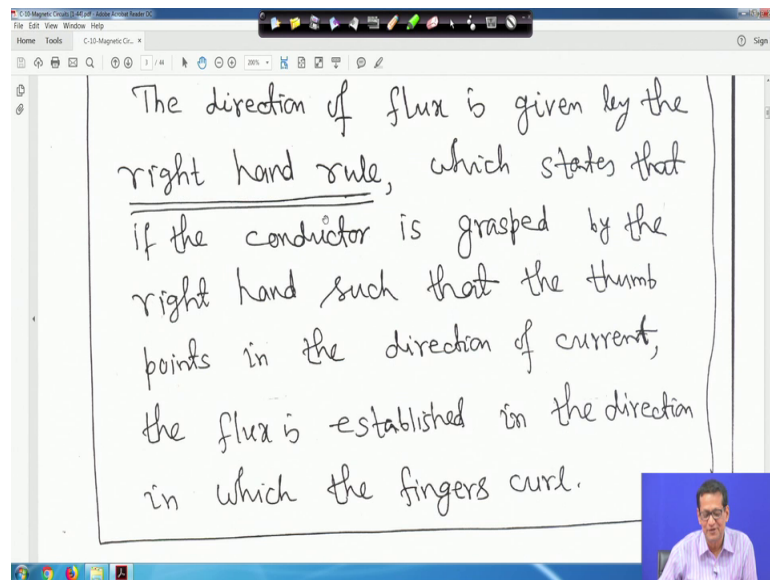 C-10-Magnetic Circuits [1-44].pdf - Adobe Acrobat Reader DC
File Edit View Window Help
Home Tools C-10-Magnetic Cir... × Sign
3 / 44 200%
The direction of flux is given by the
right hand rule, which states that
if the conductor is grasped by the
right hand such that the thumb
points in the direction of current,
the flux is established in the direction
in which the fingers curl.